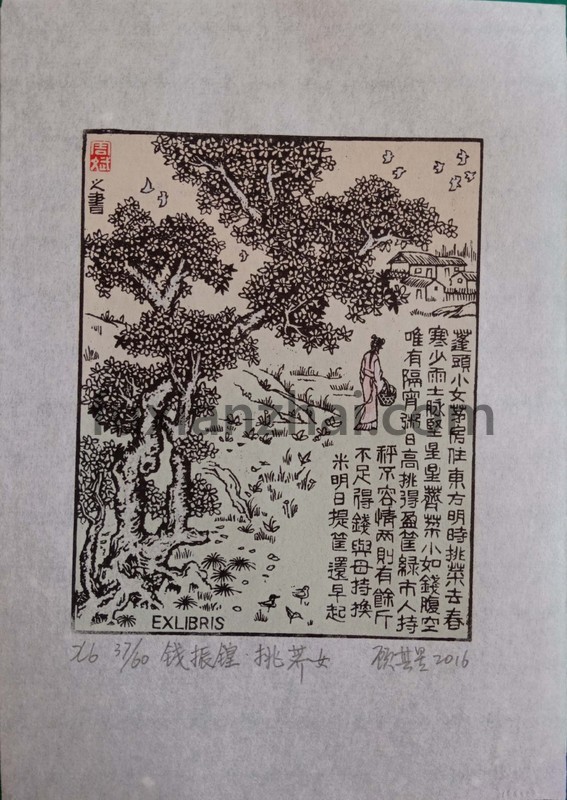 周斌
之書
蓬頭小女茅房住東方明時挑菜去春
寒少雨土脉堅星星薺菜小如錢腹空
唯有隔宵粥日高挑得盈筐綠市人持
秤不容情兩則有餘斤
不足得錢與母持換
米明日提筐還早起
EXLIBRIS
X6 37/60 钱振锽·挑荠女 顾其星 2016